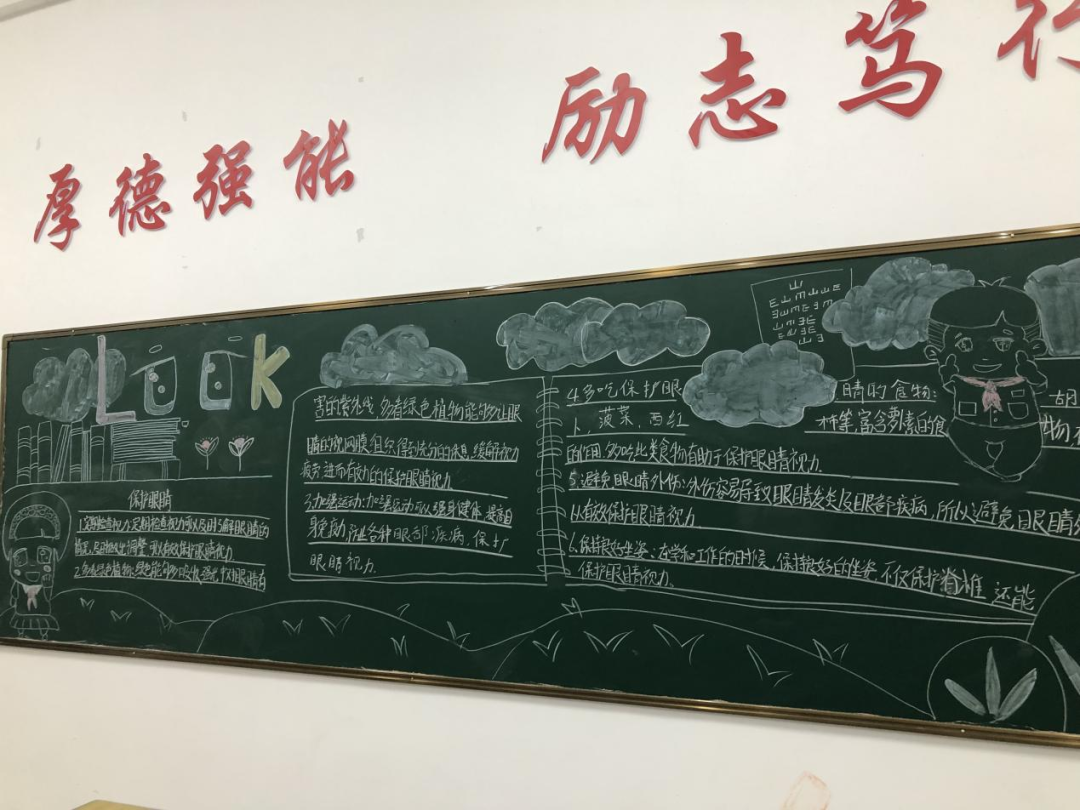 厚德强能 励志笃行
LOOK
保护眼睛
1.定期检查视力:定期检查视力可以及时了解眼睛的
情况,及时做出调整,可以有效保护眼睛视力.
2.多看绿色植物:绿色能够多吸收强光中对眼睛有
害的紫外线,多看绿色植物能够让眼
睛的视网膜组织得到充分的休息,缓解视力
疲劳,进而有效的保护眼睛视力.
3.加强运动:加强运动可以强身健体,提高自
身免疫力,防止各种眼部疾病,保护
眼睛视力.
4.多吃保护眼睛的食物: 胡
卜、菠菜、西红柿等,富含 素的食物有
的作用.多吃此类食物有助于保护眼睛视力.
5.避免眼睛外伤:外伤容易导致眼睛缺失及眼部疾病,所以避免眼睛外
以有效保护眼睛视力.
6.保持良好坐姿:在学和工作的时候,保持好的坐姿,不仅保护脊椎,还能
保护眼睛视力.